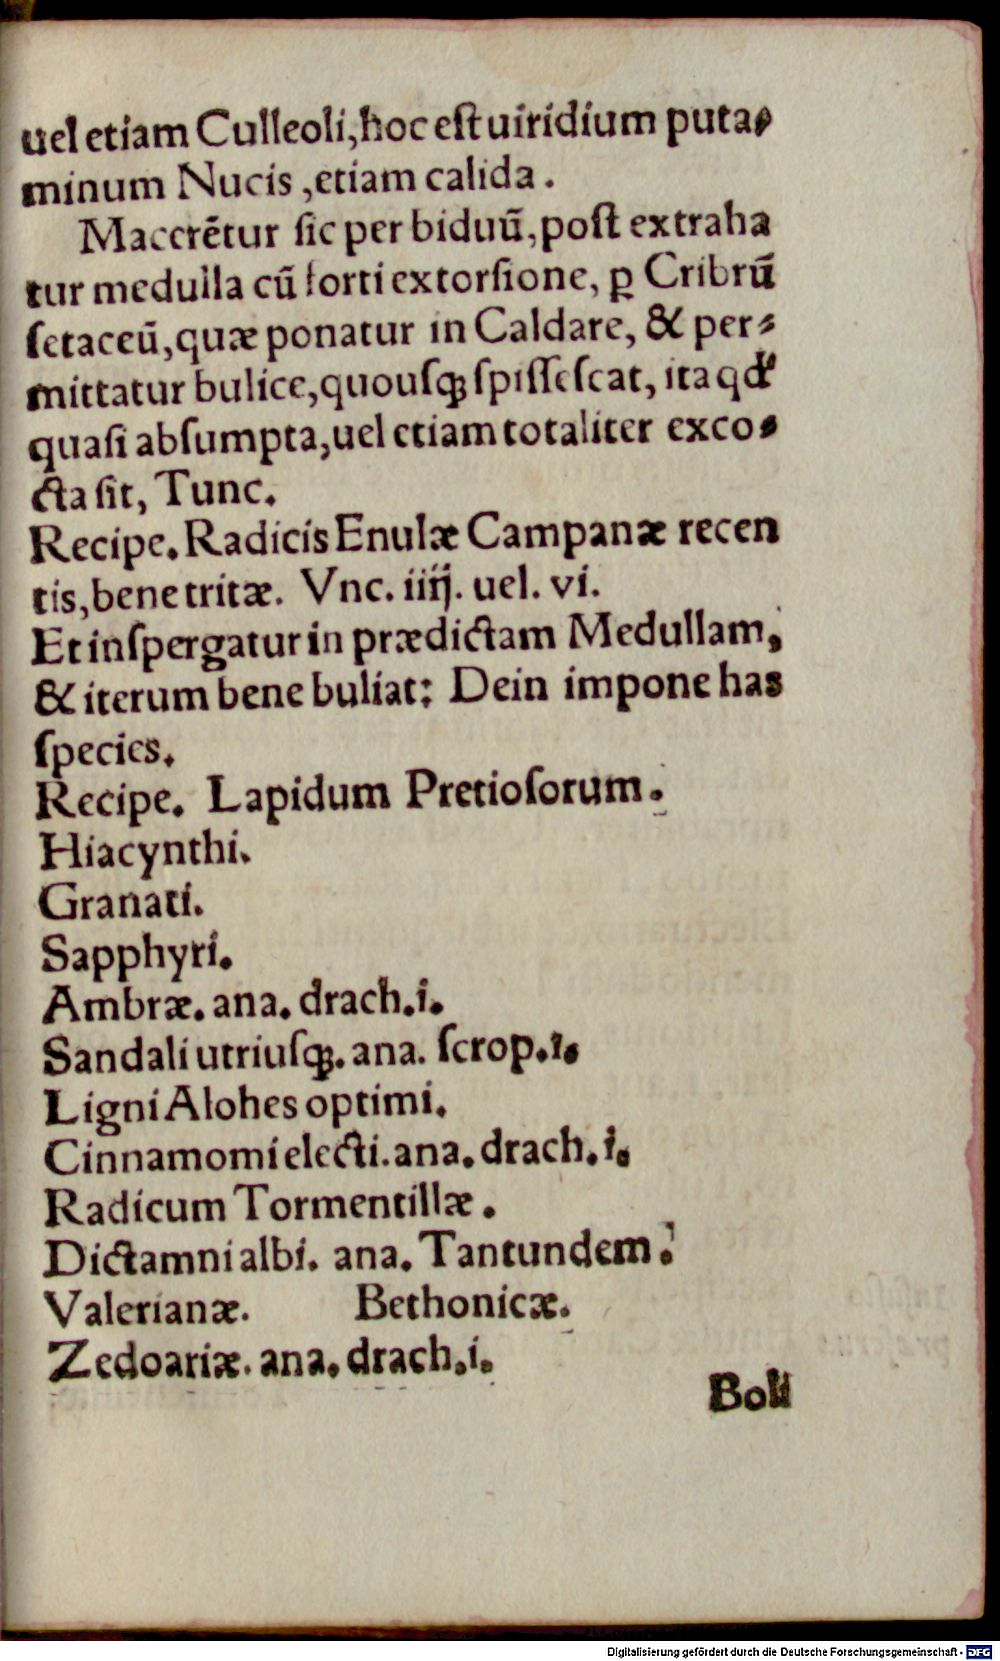 uel etiam Culleoli, hoc est uiridium puta-
minum Nucis, etiam calida.
Macerẽtur sic per biduũ, post extraha
tur medulla cũ forti extorsione, ꝑ Cribrũ
ſetaceũ, quæ ponatur in Caldare, & per-
mittatur bulire, quouſqꝫ ſpiſſeſcat, ita qď
quaſi abſumpta, uel etiam totaliter exco-
cta ſit, Tunc.
Recipe. Radicis Enulæ Campanæ recen
tis, bene tritæ. Vnc. iiij. uel. vi.
Et inſpergatur in prædictam Medullam,
& iterum bene buliat: Dein impone has
ſpecies.
Recipe. Lapidum Pretioſorum.
Hiacynthi.
Granati.
Sapphyri.
Ambræ. ana. drach. i.
Sandali utriuſqꝫ. ana. ſcrop. 1.
Ligni Alohes optimi.
Cinnamomi electi. ana. drach. i.
Radicum Tormentillæ.
Dictamni albi. ana. Tantundem.
Valerianæ. Bethonicæ.
Zedoariæ. ana. drach. i.
Boli
Digitalisierung gefördert durch die Deutsche Forschungsgemeinschaft - DFG